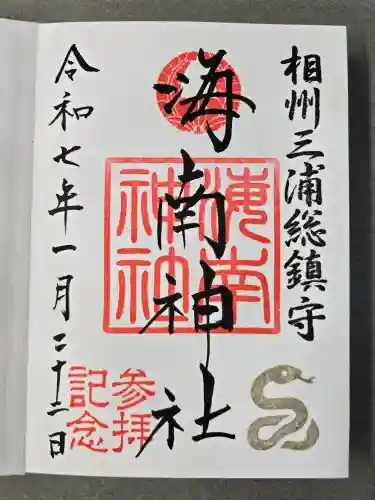 相州三浦総鎮守
海南神社
海南
神社
参拝
記念
令和七年一月二十二日